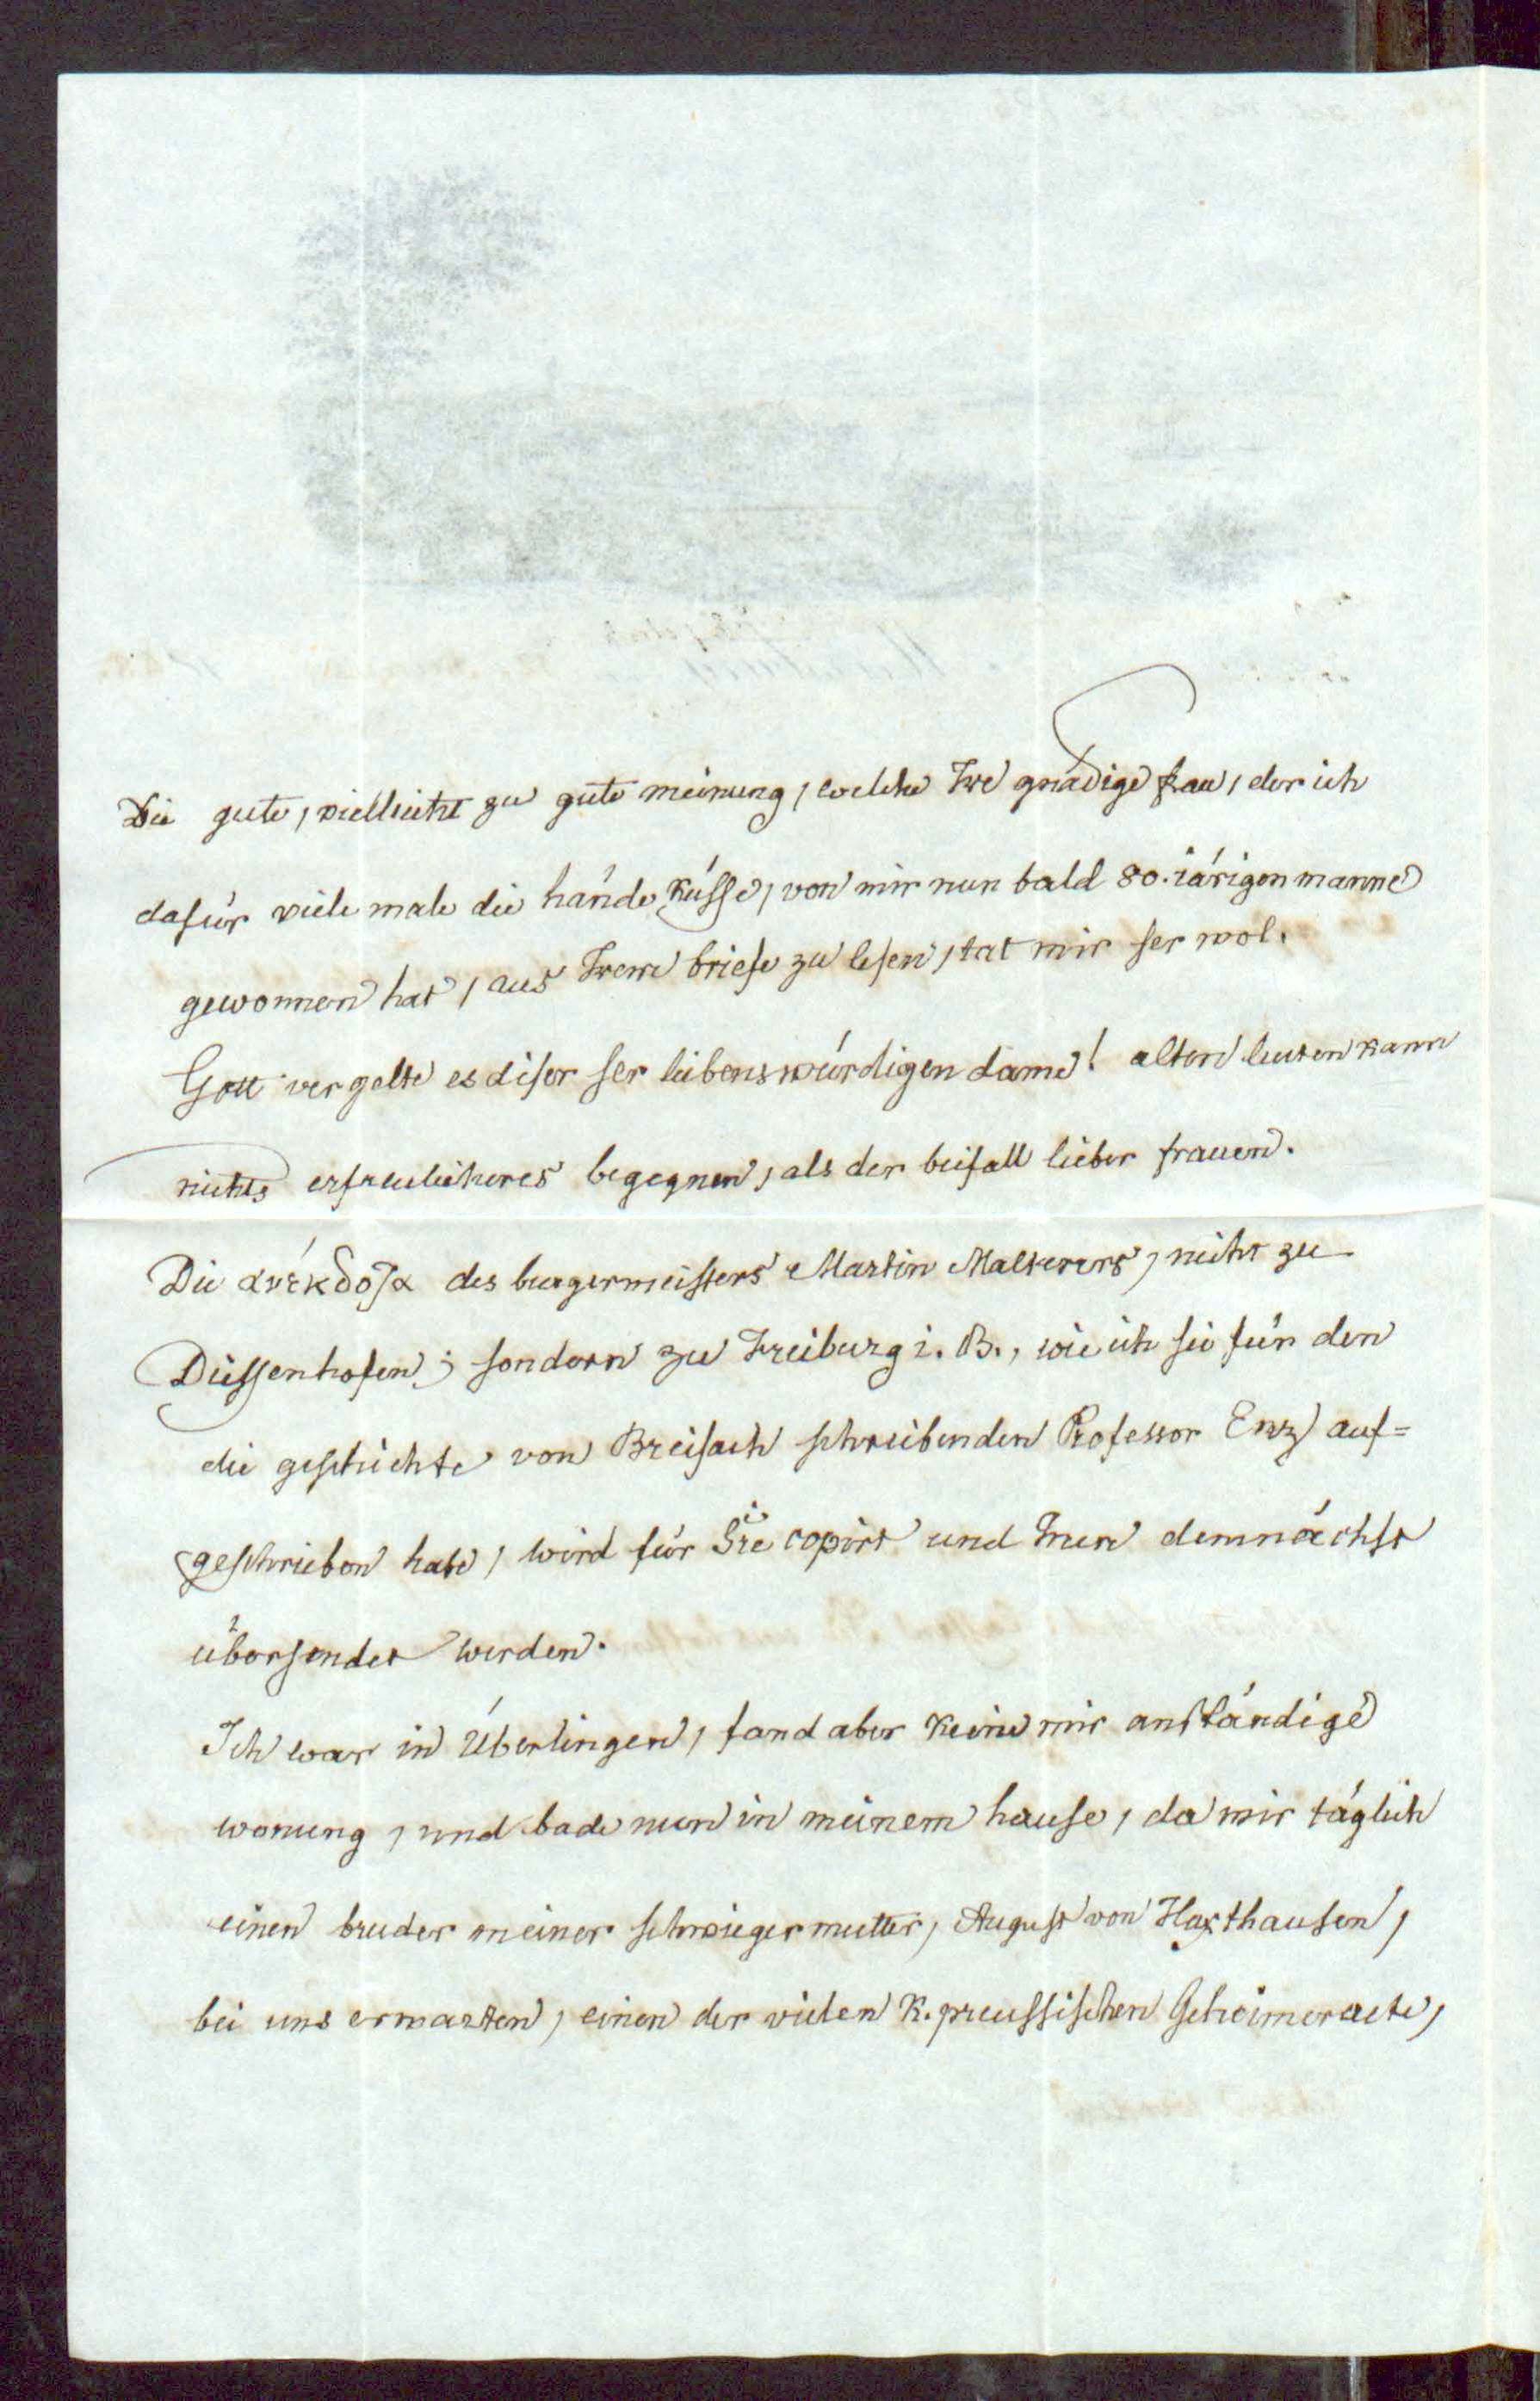 Die gute, villeicht zu gute meinung, welche Ire gnädige frau, der ich
dafür viele male die hände küsse, von mir nun bald 80.iärigen manne
gewonnen hat, aus Irem briefe zu lesen, tat mir ser wol.
Gott vergelte es diser ser liebenswürdigen dame! alten leuten kann
nichts erfreulicheres begegnen, als der beifall lieber frauen.
Die ανέκδοτα des burgermeisters Martin Malterers, nicht zu
Diessenhofen, sondern zu Freiburg i. B., wie ich sie für den
die geschichte von Breisach schreibenden Professor auf=
geschrieben habe, wird für Sie copirt und Inen demnächst
übersendet werden.
Ich war in Überlingen, fand aber keine mir anständige
wonung, und bade nun in meinem hause, da wir täglich
einen bruder meiner schwiegermutter, August von Haxthausen,
bei uns erwarten, einen der vielen K. preussischen Geheimeraete,